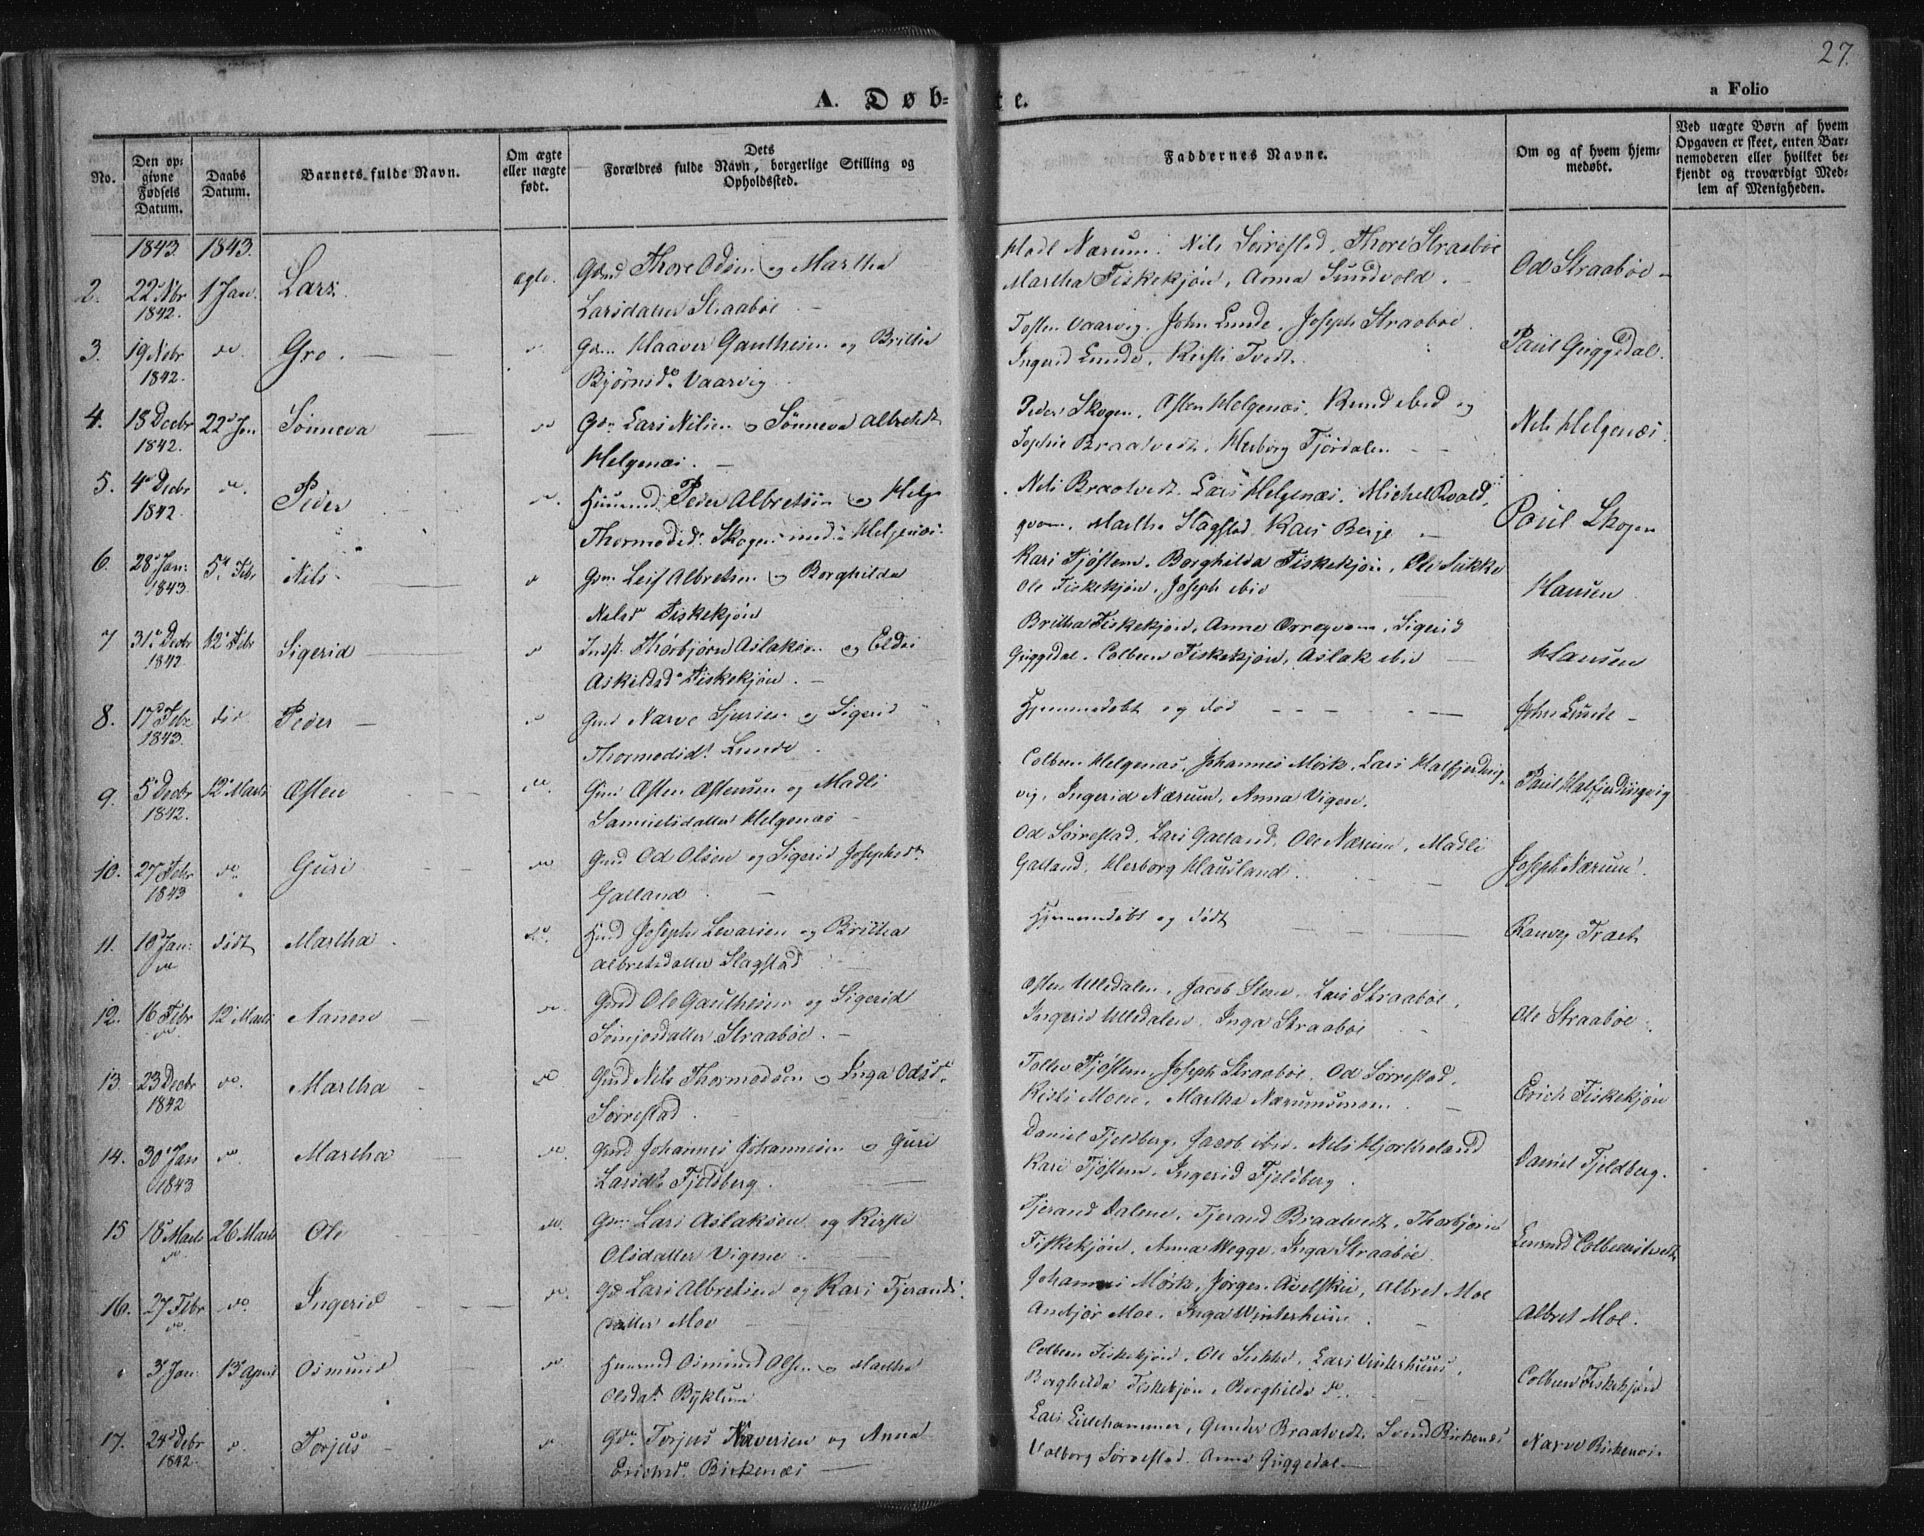 27.
A. Døb- te.
a Folio
No.
Den op-
givne
Fødsels
Datum.
Daabs
Datum.
Barnets fulde Navn.
Om ægte
eller nægte
født.
Dets
Forældres fulde Navn, borgerlige Stilling og
Opholdssted.
Faddernes Navne.
Om og af hvem hjem-
medøbt.
Ved nægte Børn af hvem
Opgaven er skeet, enten Bar-
nemoderen eller hvilket be-
kjendt og troværdigt Med-
lem af Menigheden.
1843. 1843.
2. 22 Nbr 1842. 1 Jan. Lars. ægte. Thore Odsen og Martha
Larsdatter Straabøe
Nærum. Nils Sørrestad, Thore Straabøe
Martha Fiskekjøn, Anna Sundvold.
Od Straabøe
3. 19 Nbr 1842. do. Gro. Haaver Gautheisen og Brittha
Bjørnsdr. Vaarvig
Tosten Vaarvig. John Lunde, Joseph Straabøe.
Ingerid Lunde, Kirsti Tvedt.
Paul Guggedal.
4. 18 Decbr 1842. 22 Jan Sønneva do Lars Nilsen og Sønneva Albretsdt
Helgenæs.
Peder Skogen, Østen Helgenæs, Knud ibid og
Sophie Braatvedt, Herborg Fjørdalen
Nils Helgenæs.
5. 4 Decbr 1842. do. Peder do. Huusmd Peder Albretsen og Helge
Thormodsd. Skogen
Nils Braatvedt. Lars Helgenæs. Michel
Martha Slagstad Kari Berge
Paul Skogen
6. 28 Jan: 1843. 5 Febr Nils Leif Albretsen og Borghilda
Nilsd Fiskekjøn
Kari Fjøstem. Borghilda Fiskekjøn, Ole Sukke
Ole Fiskekjøn, Joseph ibid
Hansen
7 31 Decbr 1842. 12 Febr Sigerid Thorbjørn Aslaksen og Eldri
Askildsd. Fiskekjøn.
Britha Fiskekjøn, Anna Sigerid
Guggedal. Colbeen Fiskekjøn, Aslak ibid
Hansen
8. 17 Febr 1843. død Peder do Narve Sjursen og Sigerid
Thormodsdt. Lunde.
Hjemmedøbt og død
John Lunde
9. 5 Decbr 1842. 12 Marts Østen do. Østen Østensen og Madli
Samuelsdatter Helgenæs
Colben Helgenæs, Johannes Mork, Lars
vig, Ingerid Nærum, Anna Vigen.
Paul
10. 27 Febr 1843 do. Guri do Od Olsen og Sigerid Josephsdt.
Galland.
Od Sørrestad, Lars Galland, Ole Nærum, Madli
Galland, Herborg Hausland.
Joseph Nærum.
11. 10 Jan: do dødt Martha. do. Joseph Levarsen og Britha
Albretsdatter Slagstad
Hjemmedøbt og dødt
Ranveg
12. 16 Febr do 12 Marts do. Ole Gautheisen og Sigerid
Straabøe.
Østen Ulledalen, Jacob Lars Straabøe,
Ingerid Ulledalen, Inga Straabøe
Ole Straabøe.
13. 23 Decbr 1842 do. Martha do Nils Thormodsen og Inga Odsd.
Sørrestad.
Fjøstem, Joseph Straabøe, Od Sørrestad,
Kirsti Moen, Martha Nærumsmoen.
Erich Fiskekjøn
14. 30 Jan 1843 do. Martha do. Johannes Johannesen og Guri
Larsdt. Fjeldberg.
Daniel Fjeldberg, Jacob ibid, Nils Hjortheland
Kari Fjøstem, Ingerid Fjeldberg.
Daniel Fjeldberg.
15 18 Marts do 26 Marts Ole do. Lars Aslaksen og Kirsti
Olsdatter Vigene
Tjerand Dalene, Tjerand Braatvedt, Thorbjørn
Fiskekjøn, Anna Hegge, Inga Straabøe.
16. 27 Febr do do. Ingerid do. Lars Albretsen og Kari Tjerands
datter Moe
Johannes Mork, Jørgen Albret Moe
Moe, Inga Winterhuus.
Albret Moe.
3 Jan: 13 April Osmund do Osmund Olsen og Martha
Olsdat. Byklum
Colbeen Fiskekjøn, Ole Sukke, Lars Winterhuus,
Borghilda Fiskekjøn, Borghilda do.
Colbeen Fiskekjøn
17. 24 Decbr 1842. Torjus Torjus Naversen og Anna
Erichsd. Birkenæs
Lars Lillehammer, Gunder Braatvedt. Svend Birkenæs
Valborg Sørrestad. Anna Guggedal
Narve Birkenæs.